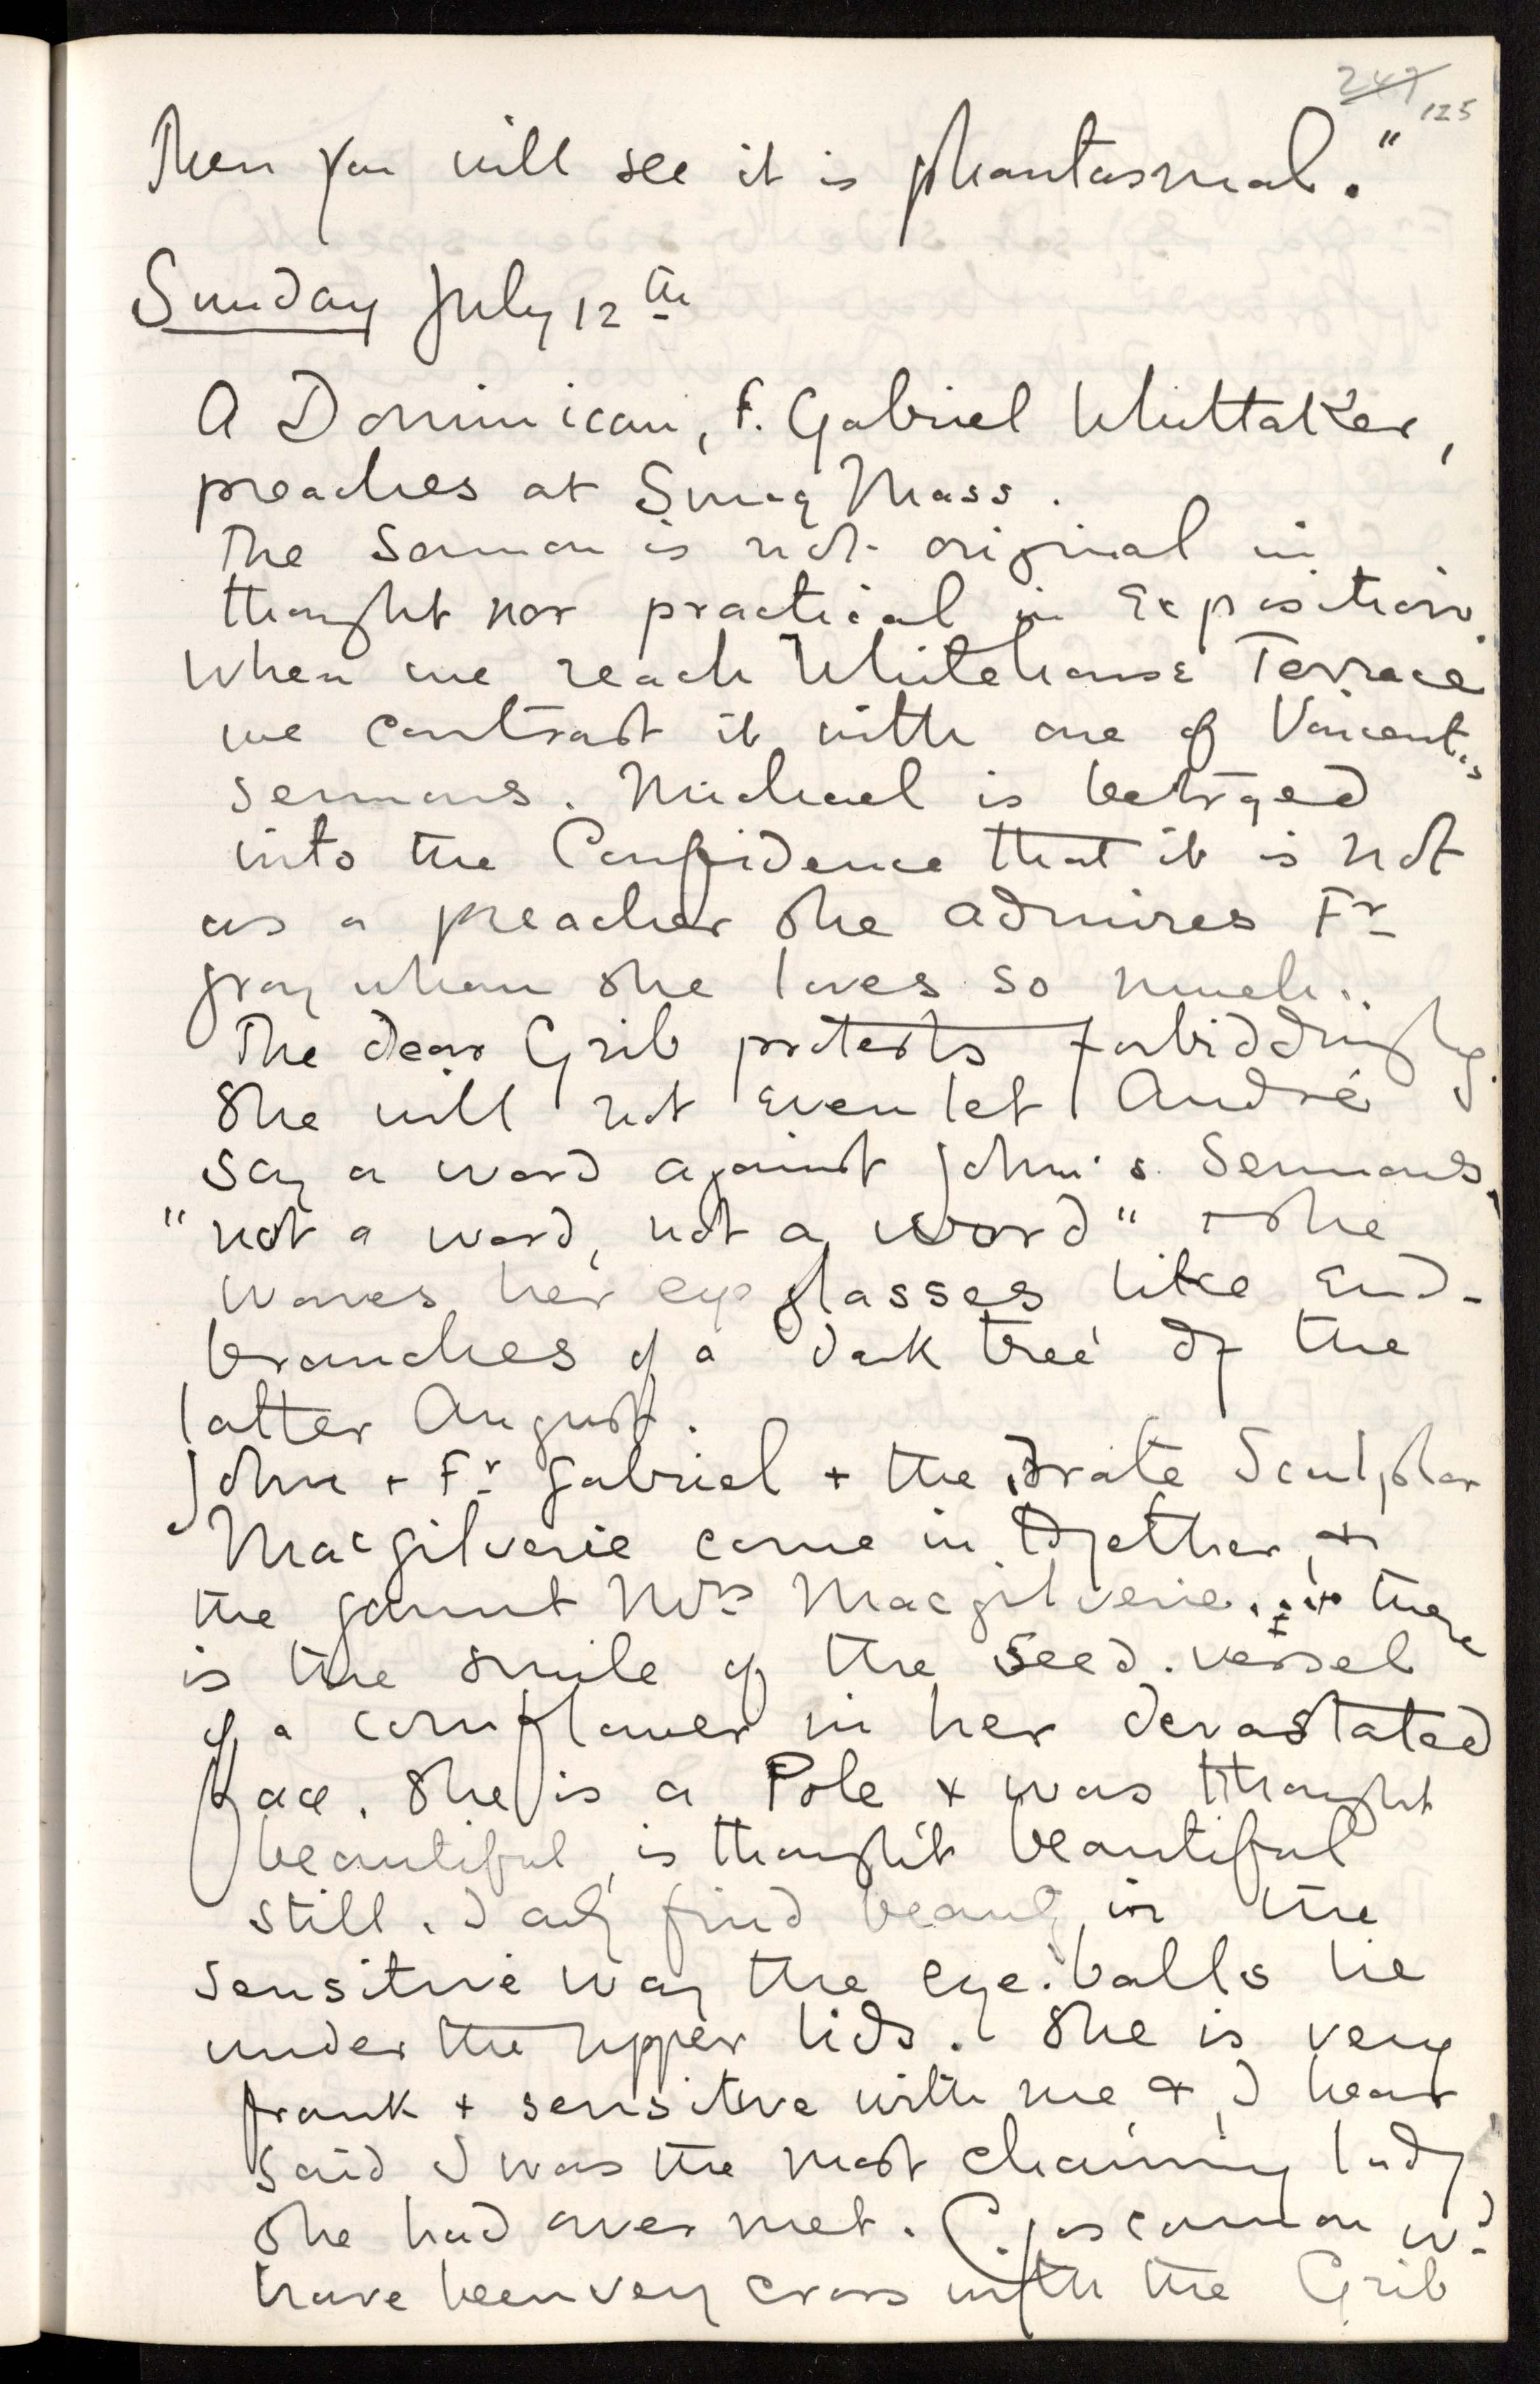 247 125
Then you will see it is phantasmal."
Sunday July 12th
A Dominican, F. Gabriel Whittaker,
preaches at Sung Mass.
The Sermon is not original in
thought nor practical in Exposition.
When we reach Whitehouse Terrace
we contrast it with one of Vincent's
sermons. Michael is betrayed
into the Confidence that it is not
as a preacher she admires Fr
Gray whom she loves so much..
The dear Grib protests forbiddingly.
She will not even let André
say a word against John's Sermons,
"not a word, not a word" + she
waves her eye glasses like End-
branches of a dark tree of the
latter August.
John + Fr Gabriel + the irate Sculptor
Macgilverie come in together, +
the gaunt Mrs Macgilverie... there
is the smile of the seed-vessel
of a cornflower in her devastated
face. She is a Pole + was thought
beautiful, is thought beautiful
still. I only find beauty in the
sensitive way the eye-balls lie
under the upper lids. She is very
frank + sensitive with me + I hear
said I was the most charming lady
she had over met. C. Joscannon wd
have been very cross with the Grib